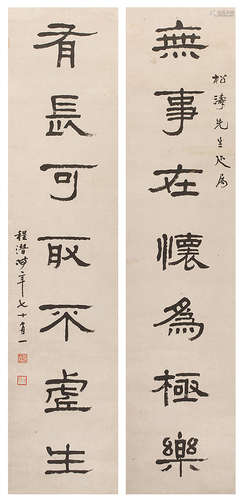 無事在懷為極樂
松濤先生处屬
有長可取不虛生
程潛時年七十有一